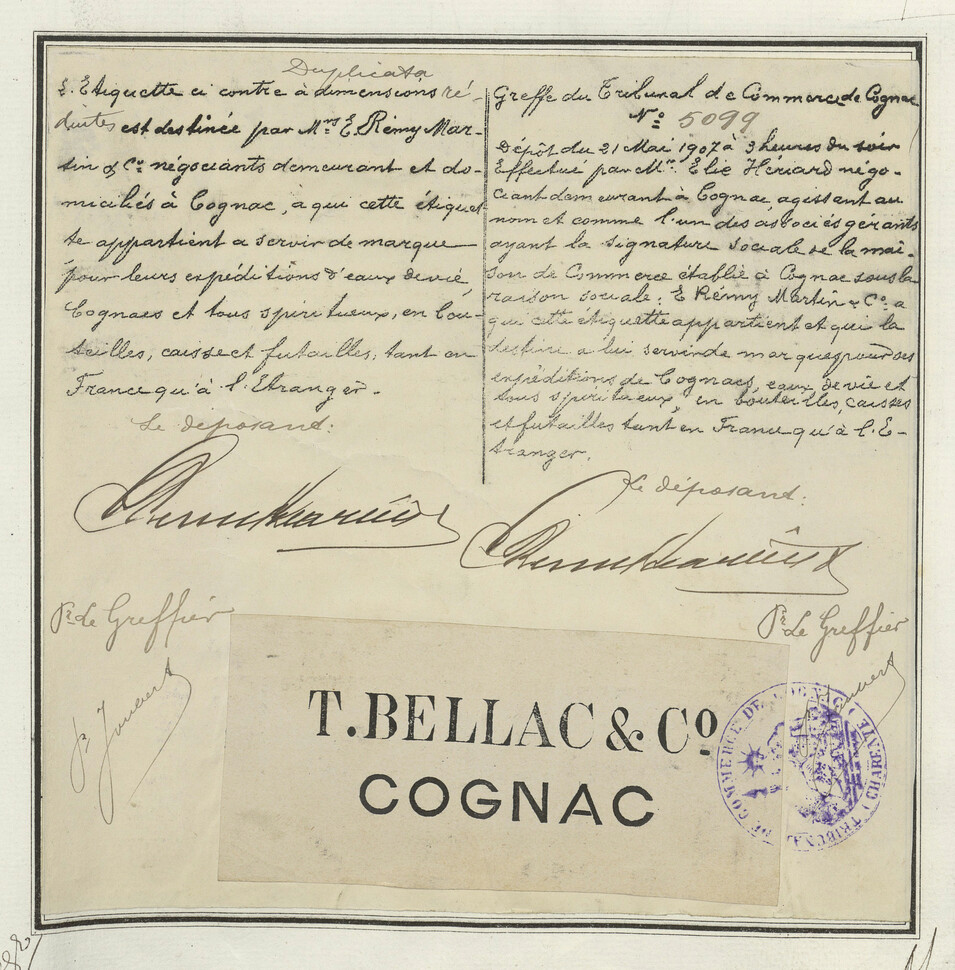 Duplicata
L'Etiquette ci contre à dimensions ré-
duites est destinée par Mrs E. Rémy Mar-
tin & Co négociants demeurant et do-
miciliés à Cognac, à qui cette étiquet-
te appartient a servir de marque
pour leurs expéditions d'eaux de vie
Cognacs et tous spiritueux, en bou-
teilles, caisse et futailles, tant en
France qu'à l'Etranger.
Le déposant:
Pr Le Greffier
Greffe du Tribunal de Commerce de Cognac
No 5099
Dépôt du 21 Mai 1907 à 3 heures du soir
Effectué par Mr. Elie Hériard négo-
ciant demeurant à Cognac agissant au
nom et comme l'un des associés gérants
ayant la signature sociale de la mai-
son de Commerce établie à Cognac sous la
raison sociale: E Rémy Martin & Co. a
qui cette étiquette appartient et qui la
destine a lui servir de marques pour ses
expéditions de Cognacs, eaux de vie et
tous spiritueux, en bouteilles, caisses
et futailles tant en France qu'à l'E-
tranger.
Le déposant:
Pr Le Greffier
T. BELLAC & Co
COGNAC
TRIBUNAL DE COMMERCE DE COGNAC (CHARENTE)